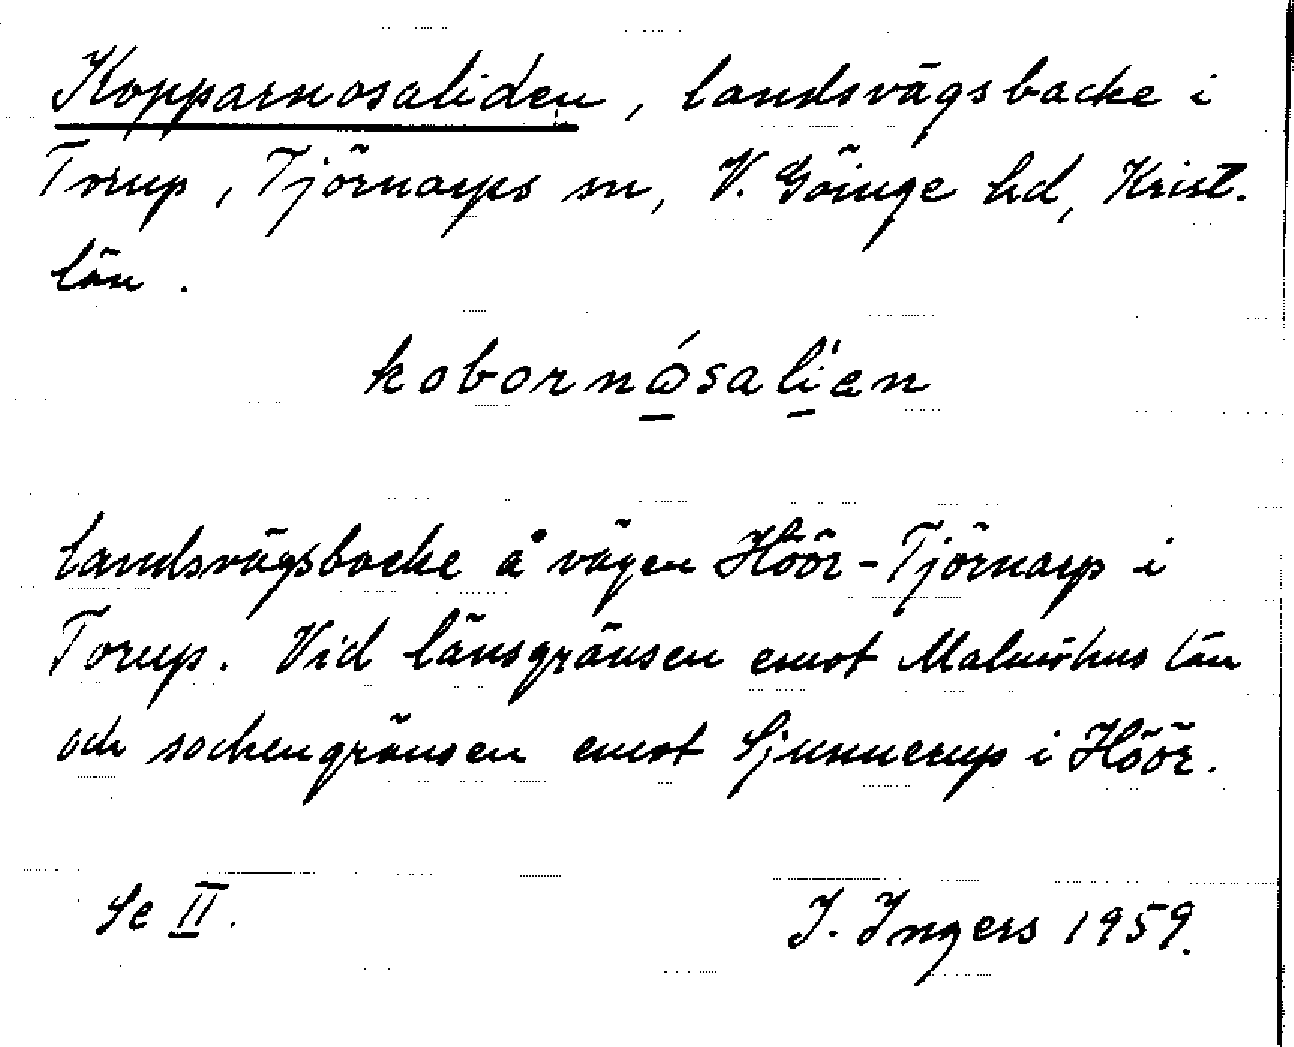 Kopparnosaliden, landsvägsbacke i
Torup, Tjörnarps sn, V. Göinge hd, Krist.
län.
kobornósalíen
Landsvägsbacke å vägen Höör-Tjörnarp i
Torup. Vid länsgränsen emot Malmöhus län
och sockengränsen emot Sjunnerup i Höör.
Se II.
I. Ingers 1959.